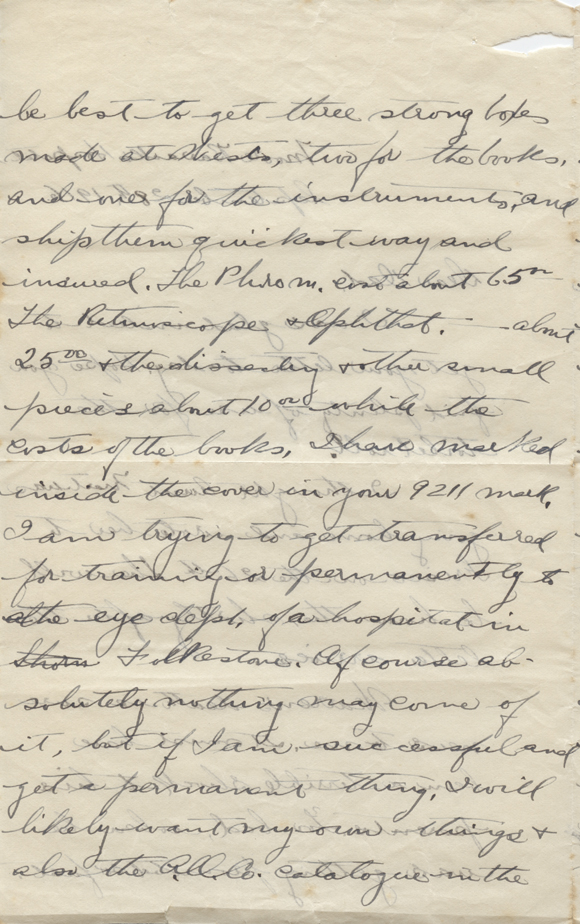 be best to get three strong boxes
made at Hests, two for the books,
and one for the instruments, and
ship them quickest way and
insured. The Phrom. cost about 65⁰⁰
The Retinoscope & Ophthal. — about
25⁰⁰ & the dissecting & other small
pieces about 10⁰⁰ while the
costs of the books, I have marked
inside the cover in your 9211 mark.
I am trying to get transferred
for training or permanently to
the eye dept. of a hospital in
Shorn Folkestone. Of course ab-
solutely nothing may come of
it, but if I am successful and
get a permanent thing, I will
likely want my own things &
also the A.O.Co. catalogue in the